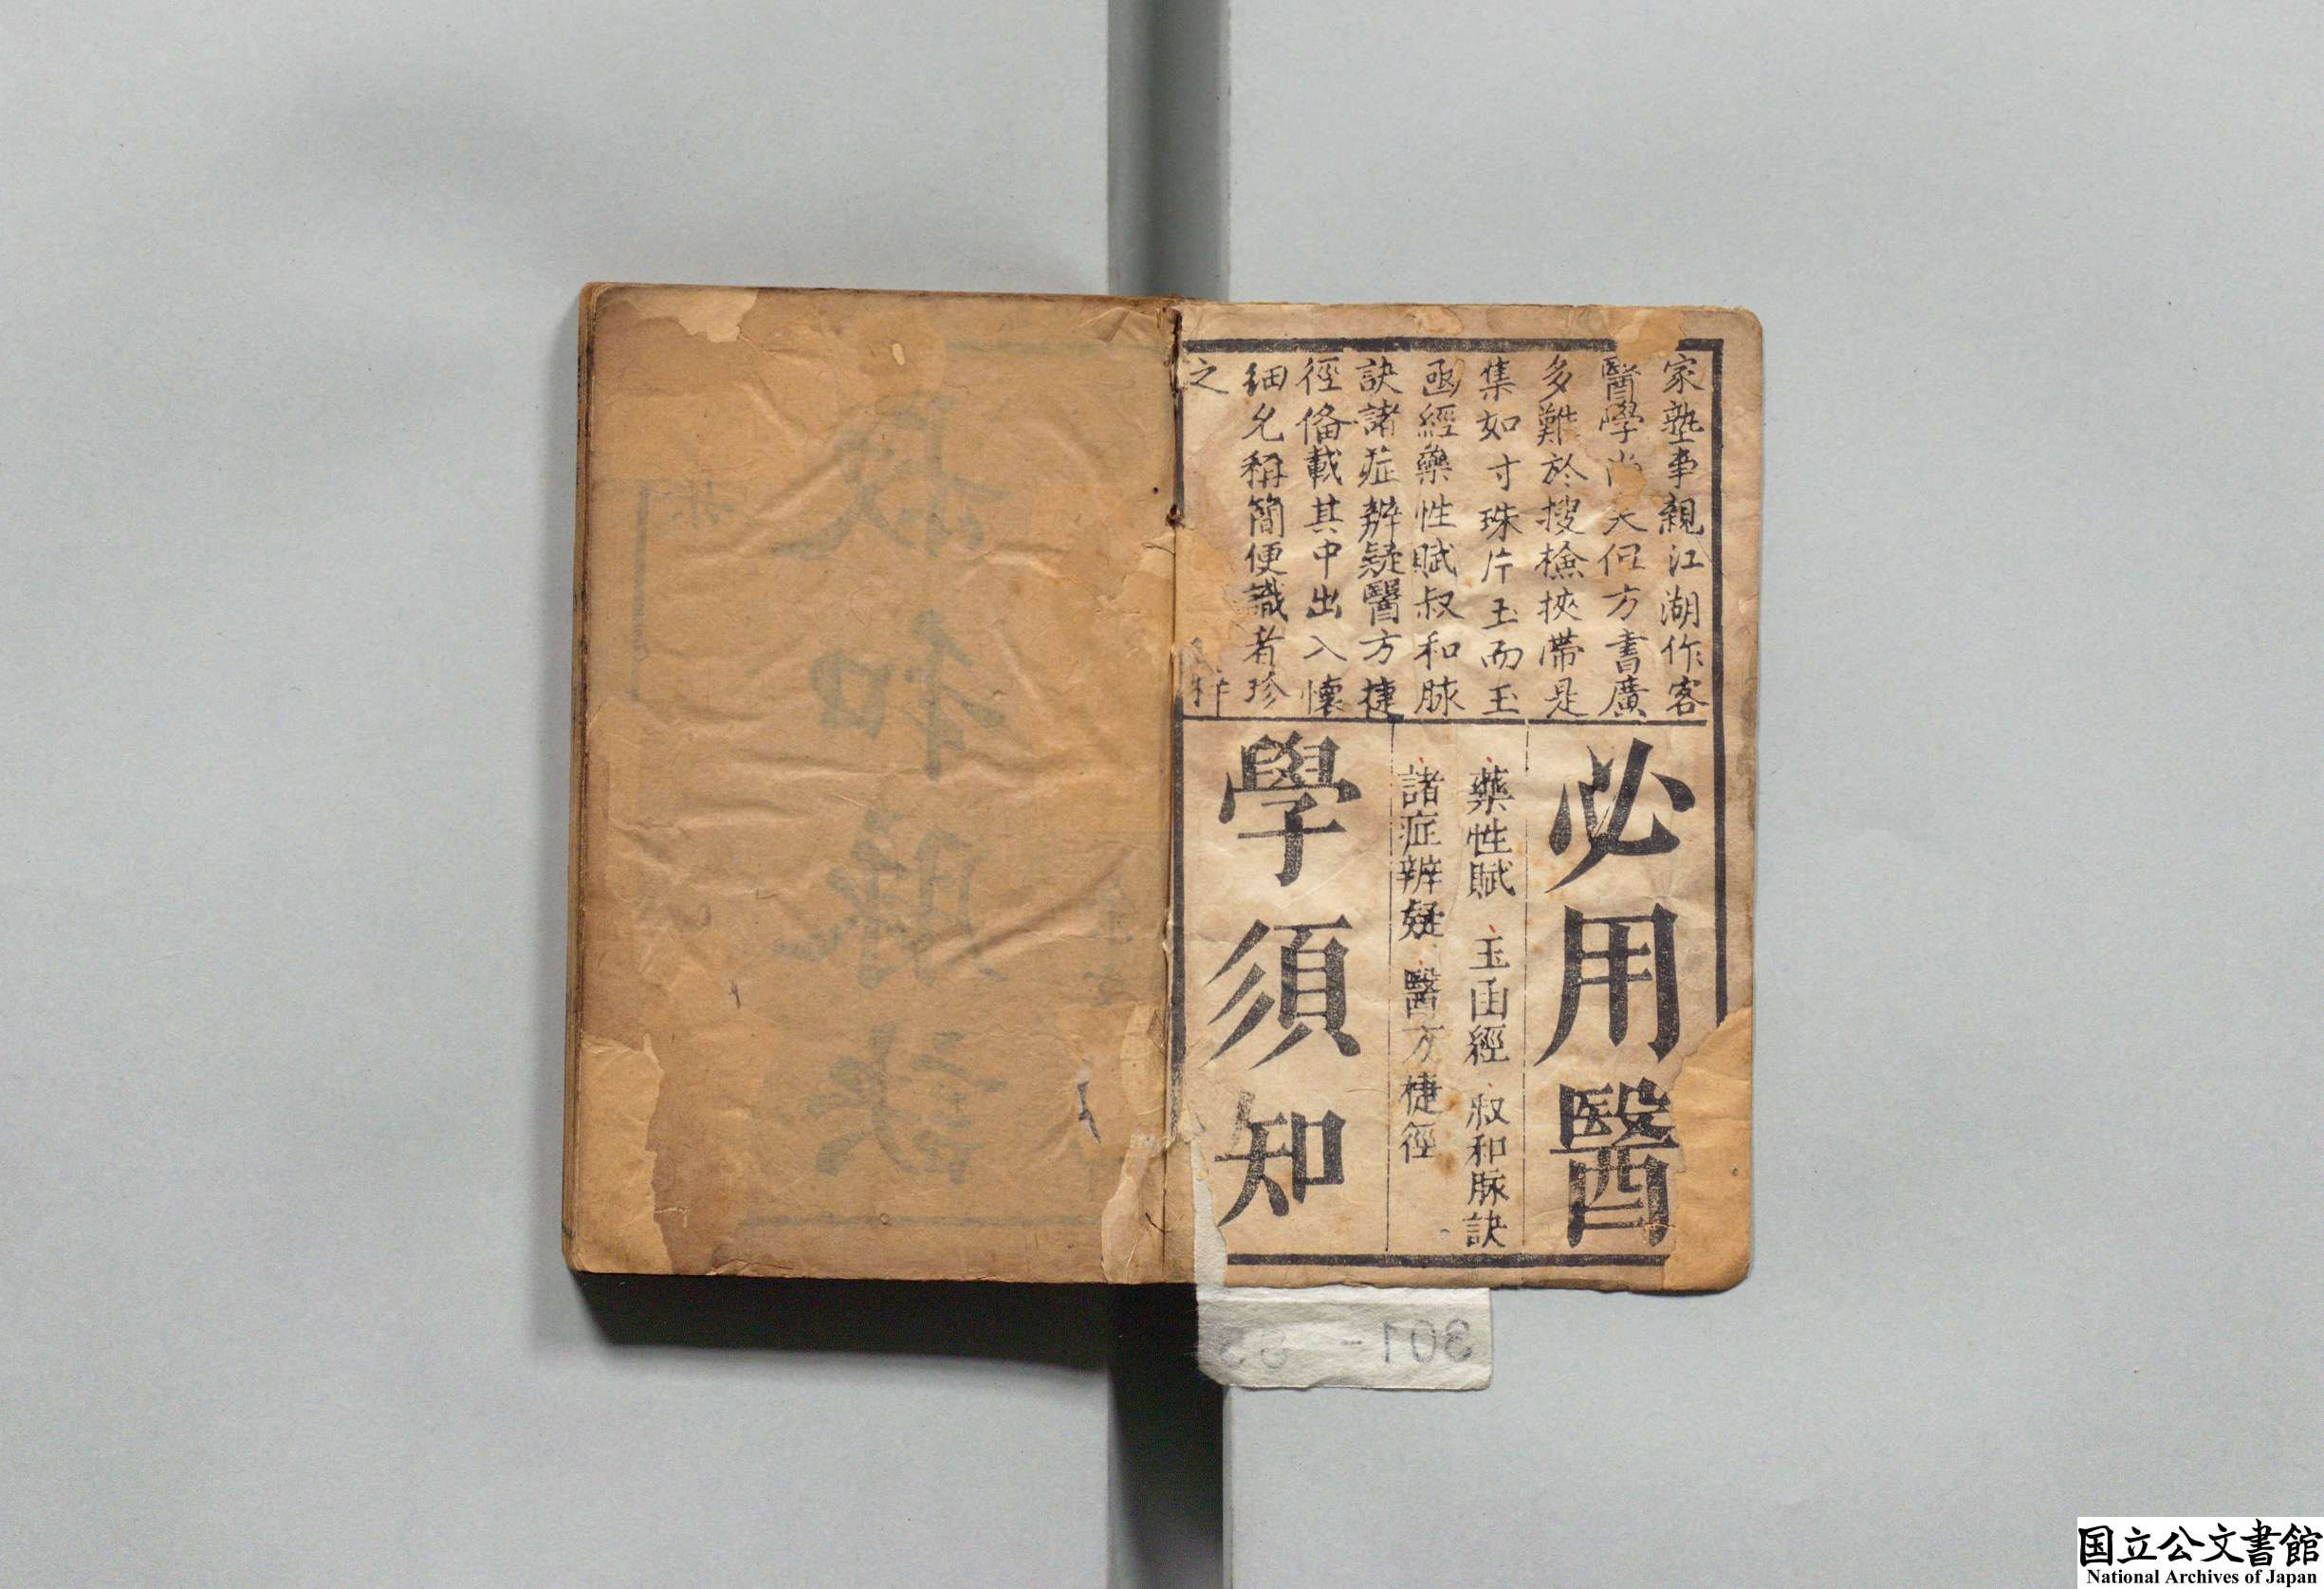 家塾事親江湖作客
醫學尚矣但方書廣
多難於搜檢挾帶是
集如寸珠片玉而玉
函經藥性賦叔和脉
訣諸症辨疑醫方捷
徑俻載其中出入懷
細允稱簡便識者珍
之
梓
必用醫
藥性賦 玉函經 叔和脉訣
諸症辨疑 醫方捷徑
學須知
301-
国立公文書館
National Archives of Japan